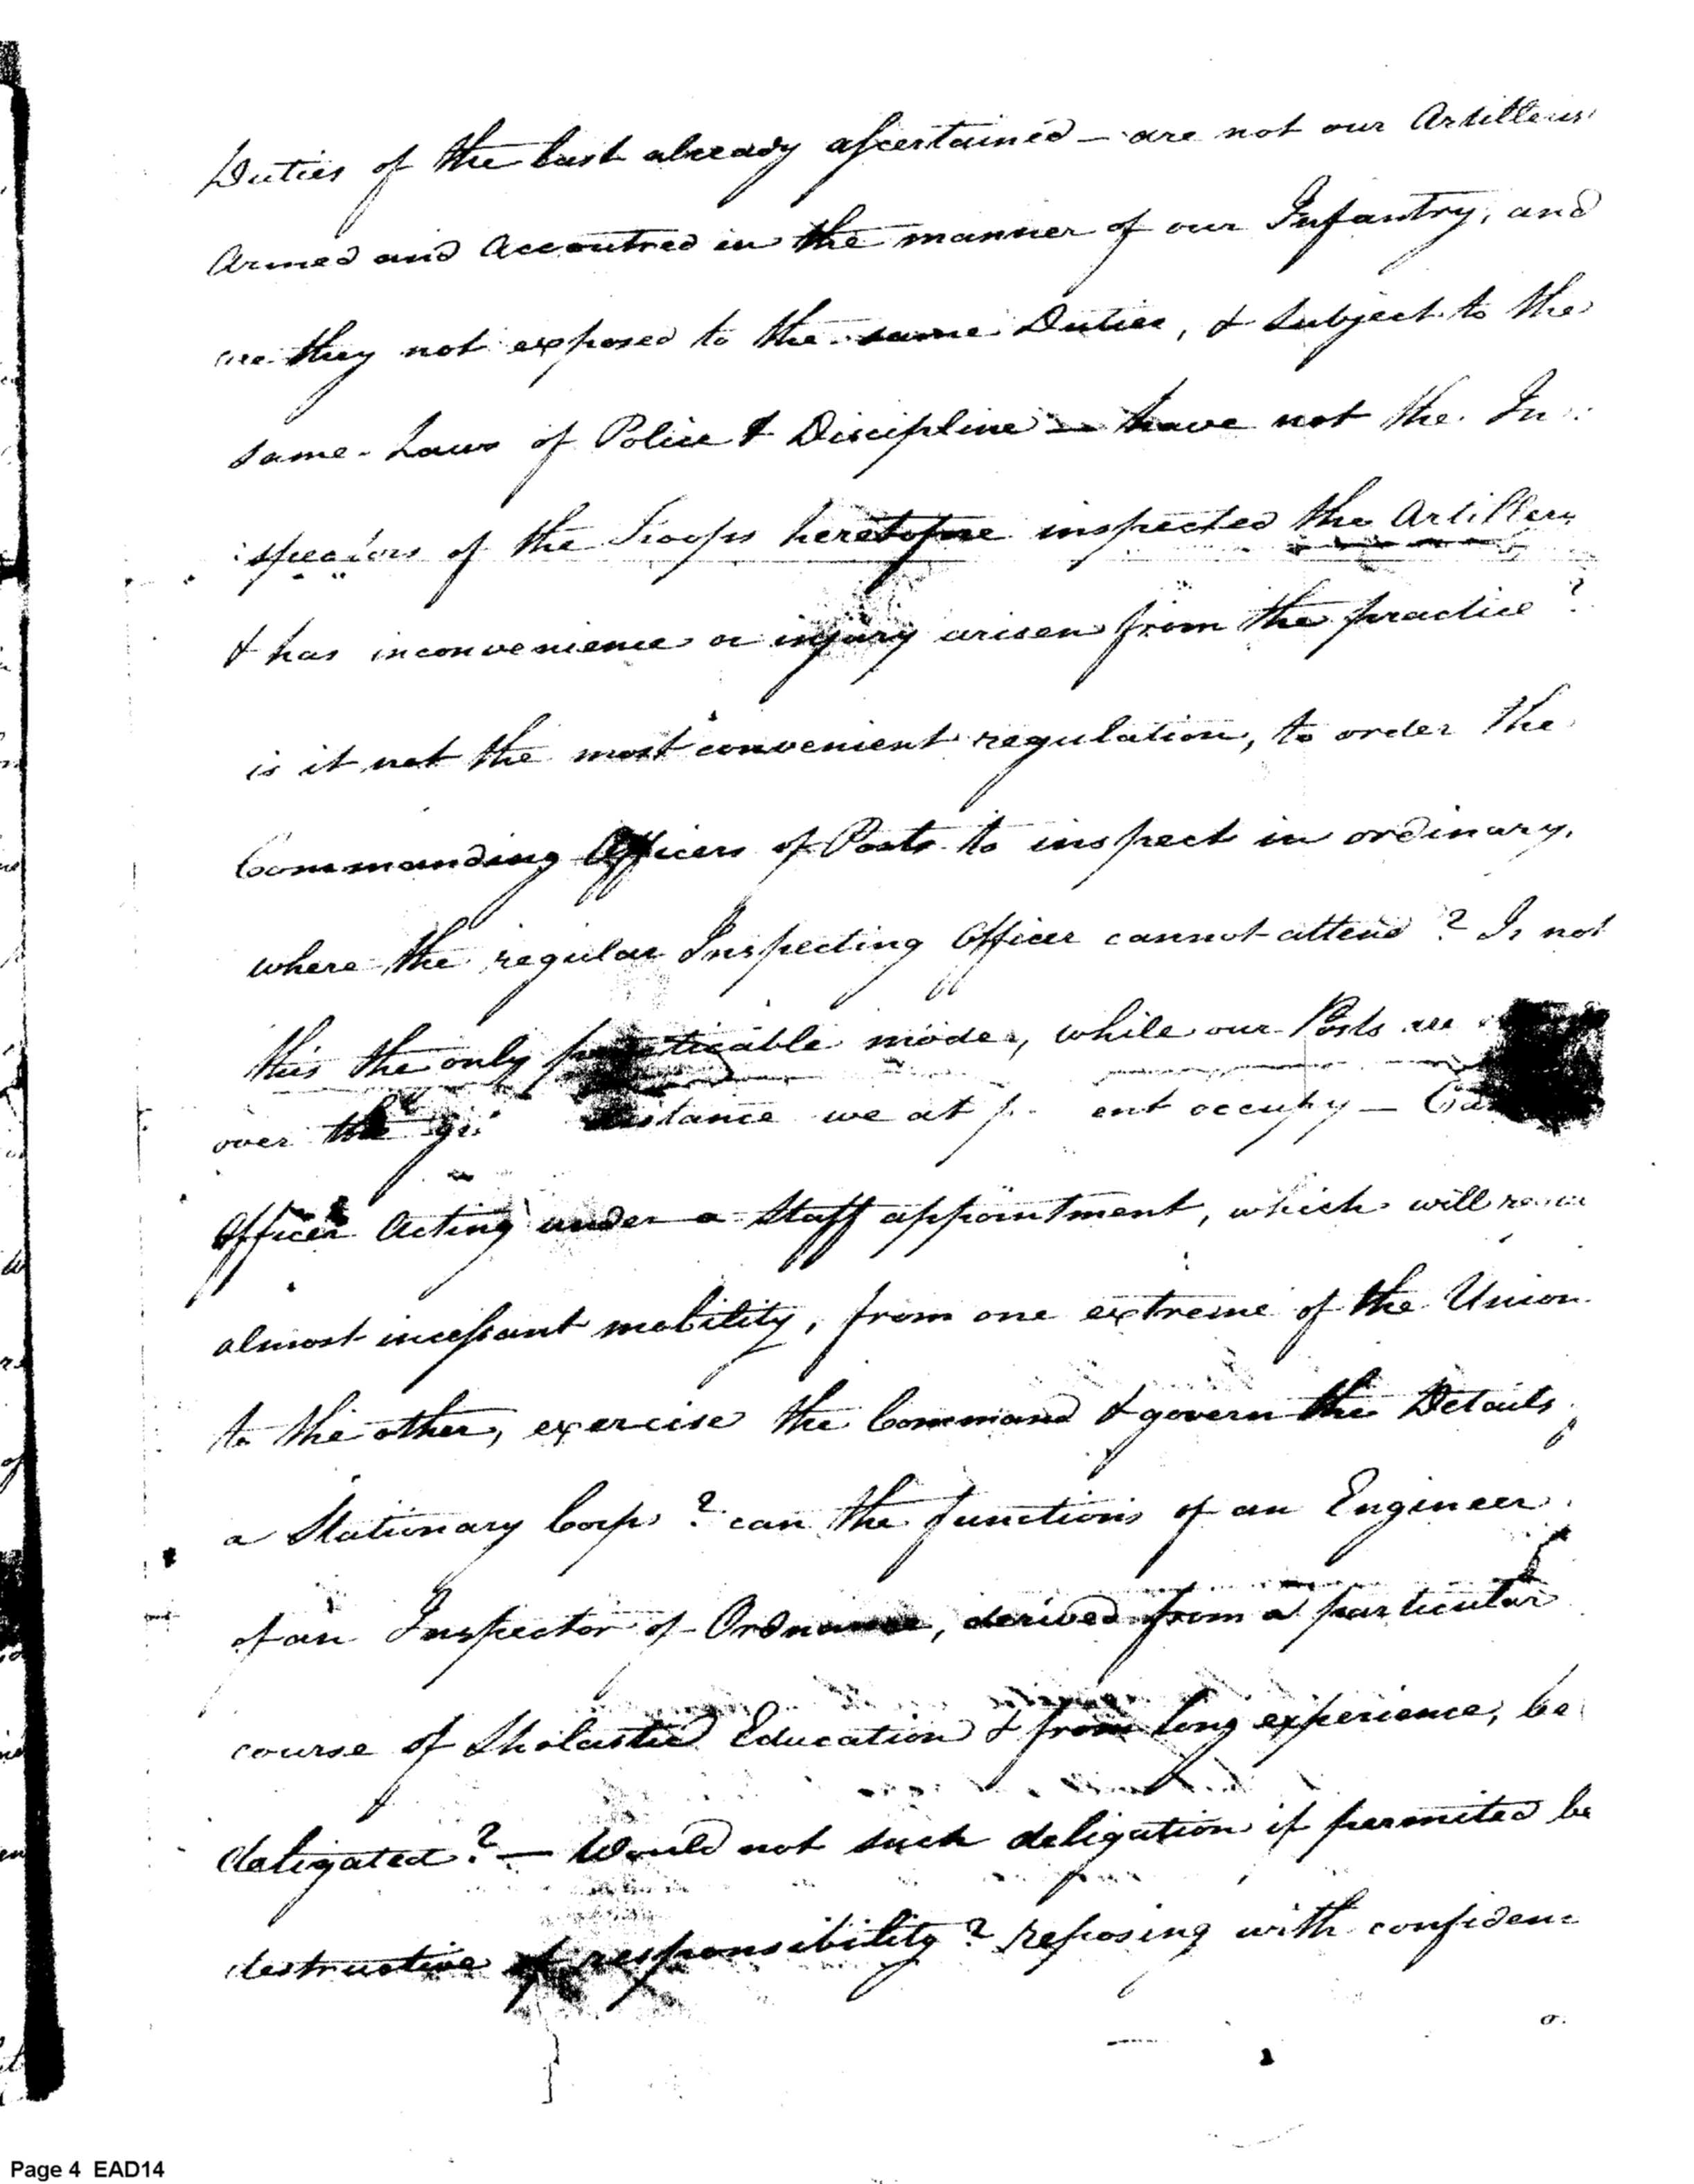 Duties of the last already ascertained — are not our Artillerists
Armed and Accoutred in the manner of our Infantry, and
are they not exposed to the same Duties, & subject to the
same Laws of Police & Discipline — have not the In:
:spectors of the Troops heretofore inspected the Artillery
& has inconvenience or injury arisen from the practice?
is it not the most convenient regulation, to order the
Commanding Officers of Posts to inspect in ordinary,
where the regular Inspecting Officer cannot attend? Is not
this the only practicable mode, while our Posts are
over the distance we at present occupy —
Officer Acting under a Staff appointment, which will
almost incessant mobility, from one extreme of the Union
to the other, exercise the Command & govern the Details
a Stationary Corps? can the functions of an Engineer
of an Inspector of Ordnance, derived from a particular
course of Sholastic Education & from long experience, be
deligated? — Would not such deligation if permited be
destructive of responsibility? reposing with confidenc
Page 4 EAD14